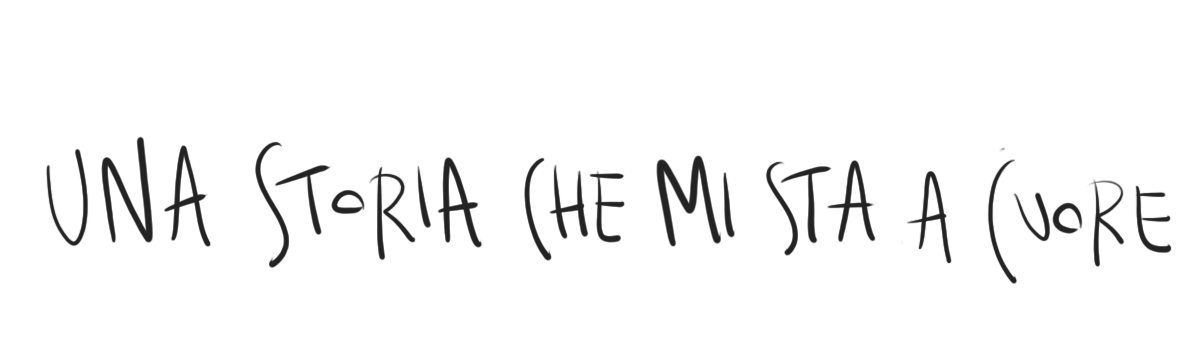 UNA STORIA CHE MI STA A CUORE